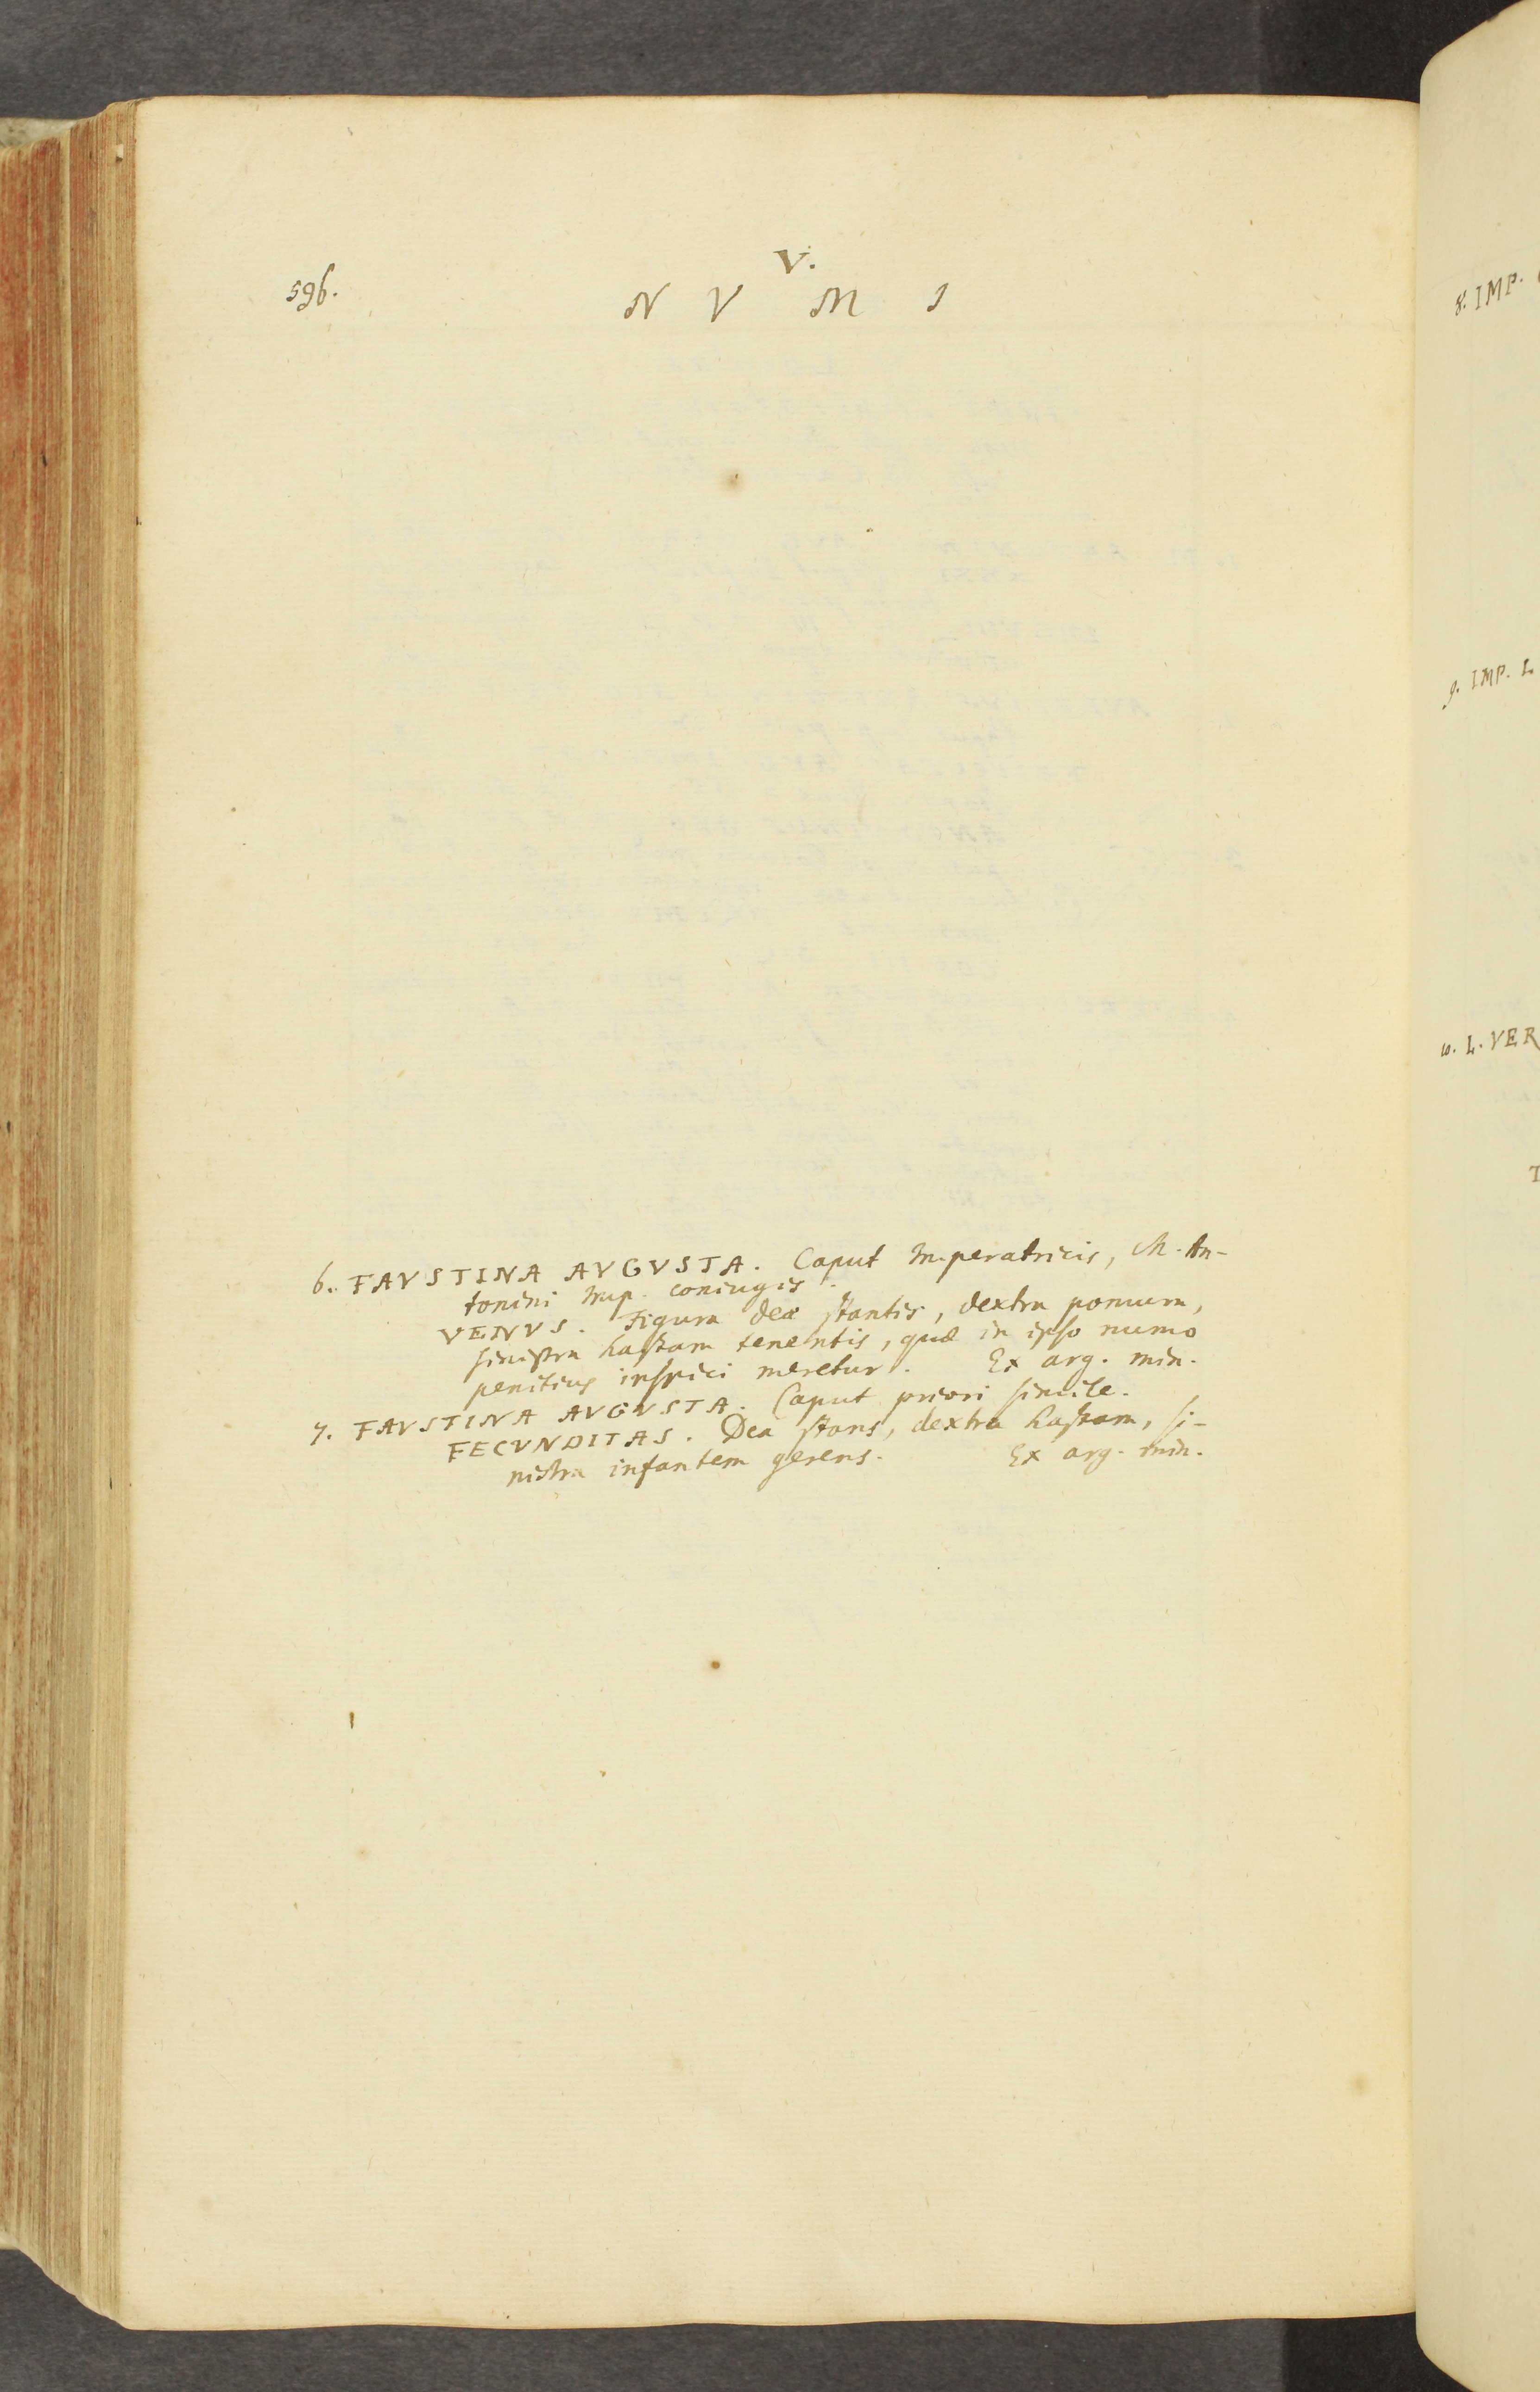 V.
596.
N V M I
6. FAVSTINA AVGVSTA. Caput Imperatricis, M. An-
tonini Imp. coniugis.
VENVS. Figura deæ stantis, dextra pomum,
sinistra hastam tenentis, quæ in ipso numo
penitius inspici meretur. Ex arg. min.
7. FAVSTINA AVGVSTA. Caput priori simile.
FECVNDITAS. Dea stans, dextra hastam, si-
nistra infantem gerens. Ex arg. min.
8. IMP.
9. IMP. L
10. L. VER